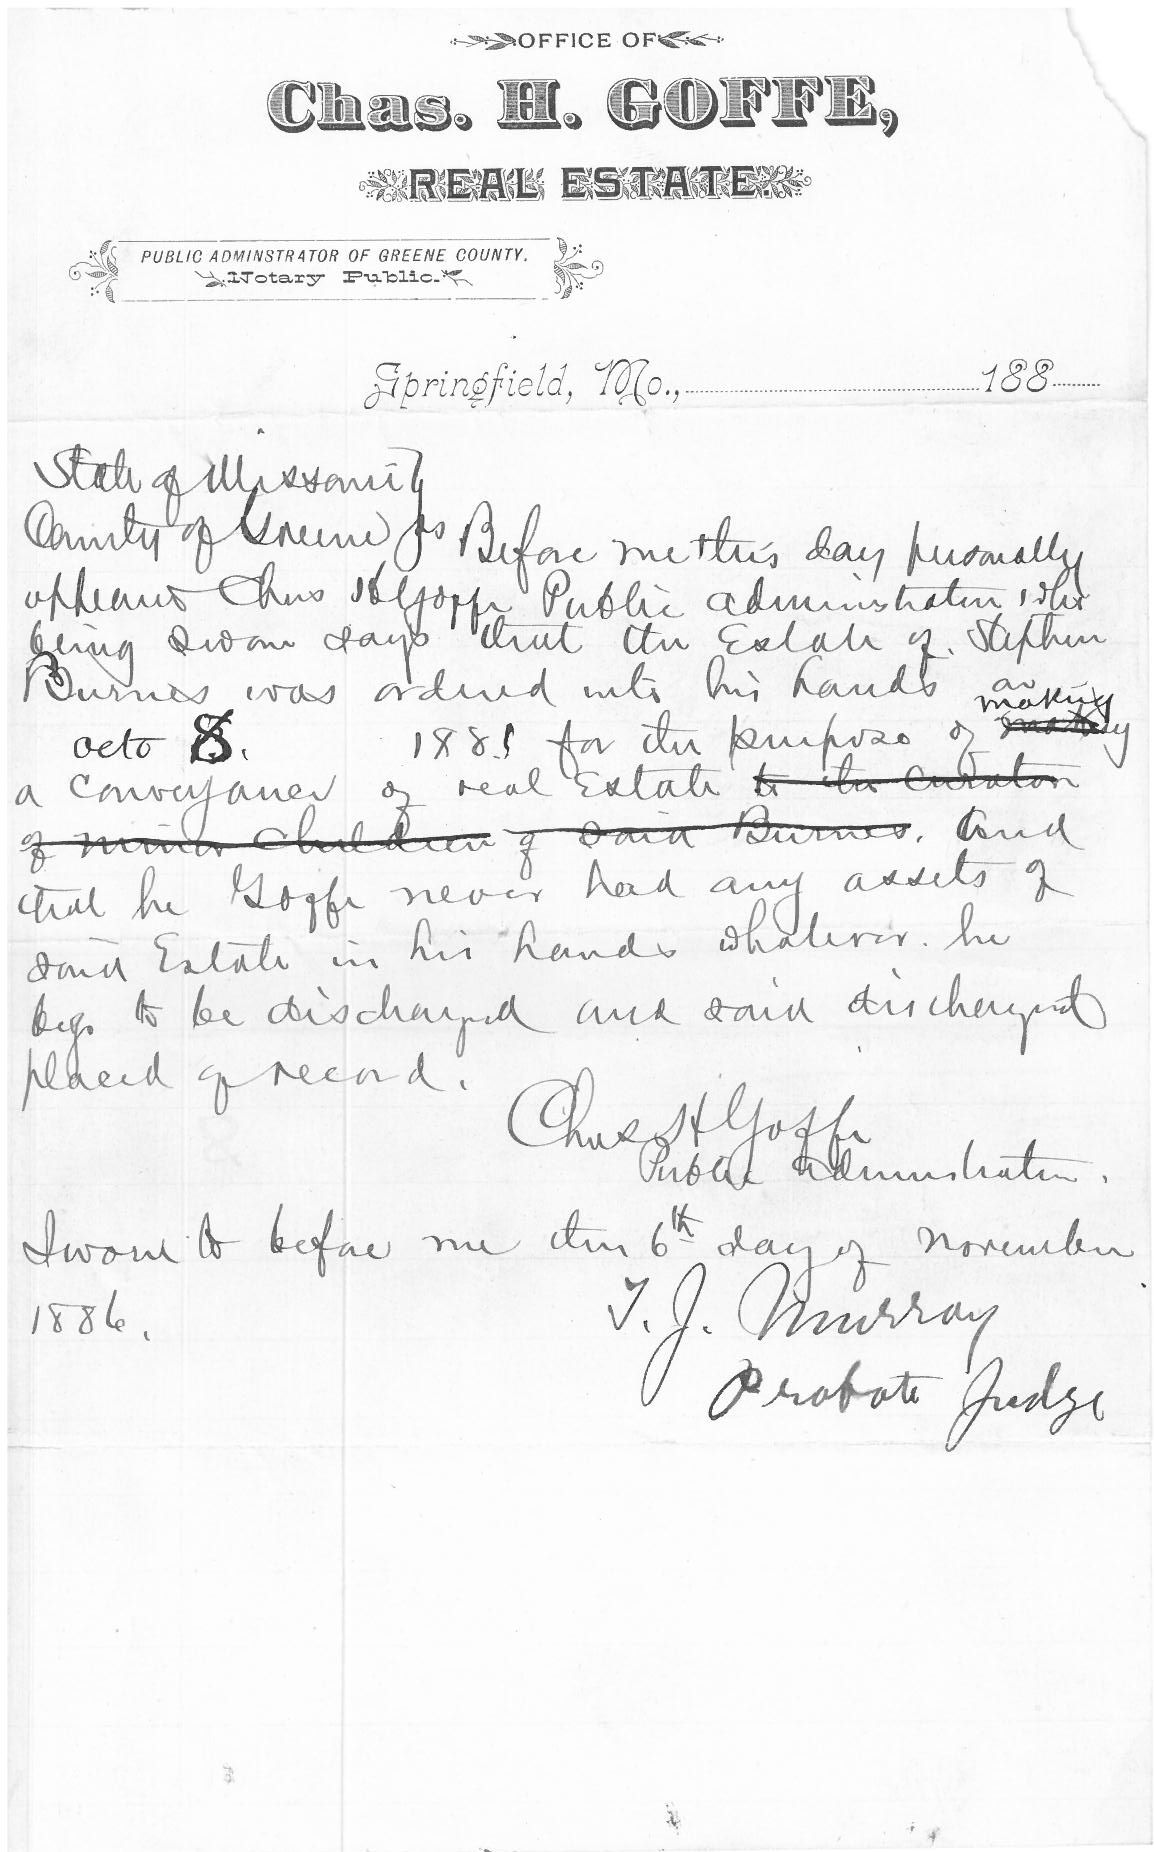 OFFICE OF
Chas. H. GOFFE,
REAL ESTATE.
PUBLIC ADMINSTRATOR OF GREENE COUNTY.
Notary Public.
Springfield, Mo., 188
State of Missouri }
County of Greene } ss Before me this day personally
appeared Chas H Goffe Public administrator who
being sworn says that the Estate of Stephen
Burnes was ordered into his hands on
making
octo 8. 1881 for the purpose of
a conveyance of real Estate to the curator
of minor children of said Burnes. And
that he Goffe never had any assets of
said Estate in his hands whatever. he
begs to be discharged and said discharged
placed of record.
Chas H Goffe
Public administrator.
Sworn to before me this 6th day of November
1886.
T. J. Murray
Probate Judge